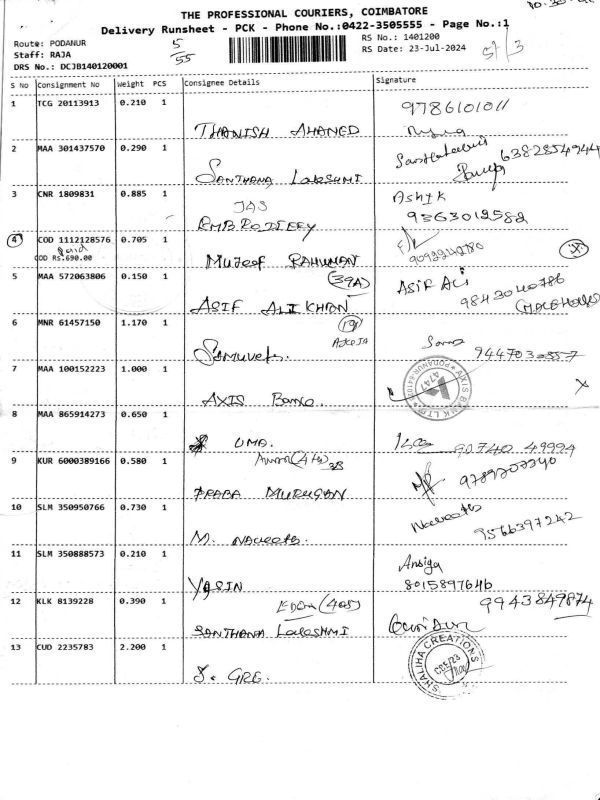 THE PROFESSIONAL COURIERS, COIMBATORE
Delivery Runsheet - PCK - Phone No.:0422-3505555 - Page No.:1
Route: PODANUR
Staff: RAJA
DRS No.: DCJB140120001
5/55
RS No.: 1401200
RS Date: 23-Jul-2024
S No Consignment No Weight PCS Consignee Details Signature
1 TCG 20113913 0.210 1 9786101011
THANISH AHAMED
2 MAA 301437570 0.290 1 6382854944
SANTHANA LAKSHMI
3 CNR 1809831 0.885 1 Ashik
JAS 9363012582
RMB ROTIEEY
4 COD 1112128576 0.705 1
Paid
COD Rs.690.00
MUJEEF RAHUMAN
(39A)
5 MAA 572063806 0.150 1 ASIF ALI
9843040786
ASIF ALI KHAN
6 MNR 61457150 1.170 1
19
9447030557
7 MAA 100152223 1.000 1
AXIS BANK LTD
PODANUR-641023
4747
AXIS Bank.
8 MAA 865914273 0.650 1
UMA. 90740 49994
9 KUR 6000389166 0.580 1 9789207340
3B
PRABA MURUGAN
10 SLM 350950766 0.730 1
9566397242
M.
11 SLM 350888573 0.210 1 Ansiya
YASIN 8015897646
12 KLK 8139228 0.390 1 9943849874
(405)
SANTHANA LAKSHMI
13 CUD 2235783 2.200 1
SHALIHA CREATIONS